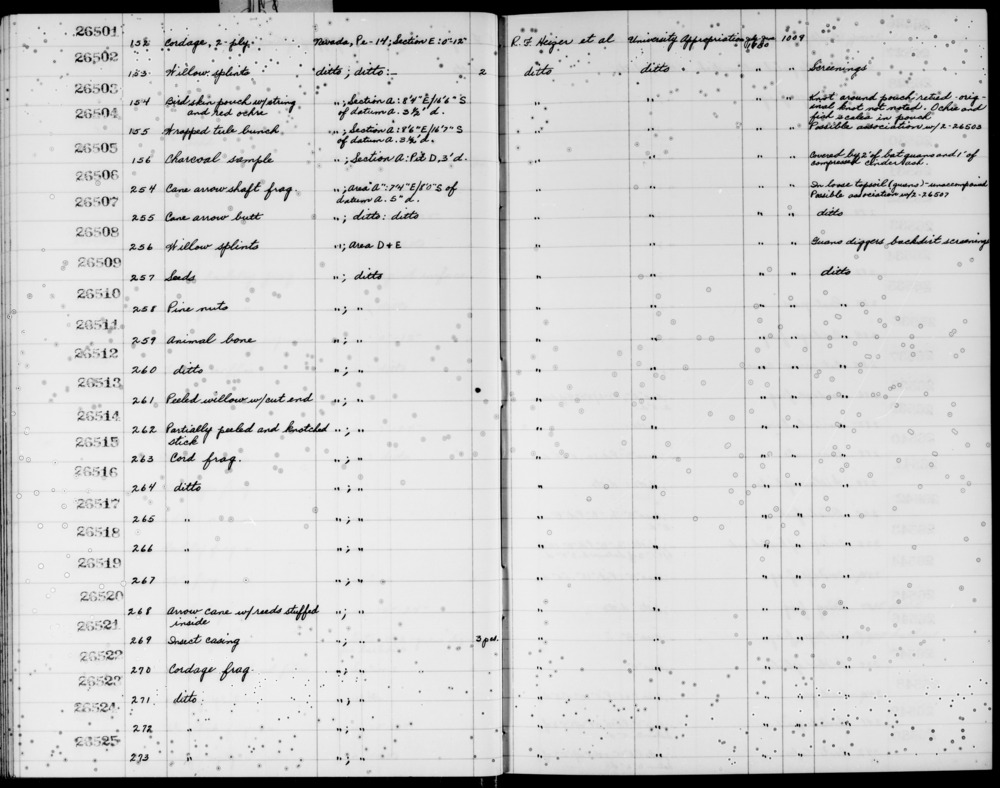 26501
152 Cordage, 2-ply. Nevada, Pe-14; Section E: 0"-12" R. F. Heizer et al University Appropriation 1009
26502
153 Willow splints ditto; ditto 2 ditto ditto " " Screenings
26503
154 Bird skin pouch w/string "; Section A: 8'4" E/16'6" S " " " " Knot around pouch retied - orig-
and red ochre of datum A. 3½' d. inal knot not noted. Ochre and
26504
fish scales in pouch
155 Wrapped tule bunch "; Section A: 8'6" E/16'7" S " " " " Possible association w/2-26503
of datum A. 3½' d.
26505
156 Charcoal sample "; Section A: Pit D, 3' d. " " " " Covered by 2" of bat guano and 1" of
compressed cinder ash.
26506
254 Cane arrow shaft frag. "; area "A": 7'4" E/8'0" S of " " " " In loose topsoil (guano)-
datum A. 5" d. Possible association w/2-26507
26507
255 Cane arrow butt "; ditto: ditto " " " " ditto
26508
256 Willow splints "; Area D + E " " " " Guano diggers backdirt screening
26509
257 Seeds "; ditto " " " " ditto
26510
258 Pine nuts "; " " " " " "
26511
259 Animal bone "; " " " " " "
26512
260 ditto "; " " " " " "
26513
261 Peeled willow w/cut end "; " " " " " "
26514
262 Partially peeled and knotched "; " " " " " "
stick
26515
263 Cord frag. "; " " " " " "
26516
264 ditto "; " " " " " "
26517
265 " "; " " " " " "
26518
266 " "; " " " " " "
26519
267 " "; " " " " " "
26520
268 Arrow cane w/reeds stuffed "; " " " " " "
inside
26521
269 Insect casing "; " 3 pcs. " " " " "
26522
270 Cordage frag. "; " " " " " "
26523
271 ditto "; " " " " " "
26524
272 " "; " " " " " "
26525
273 " "; " " " " " "